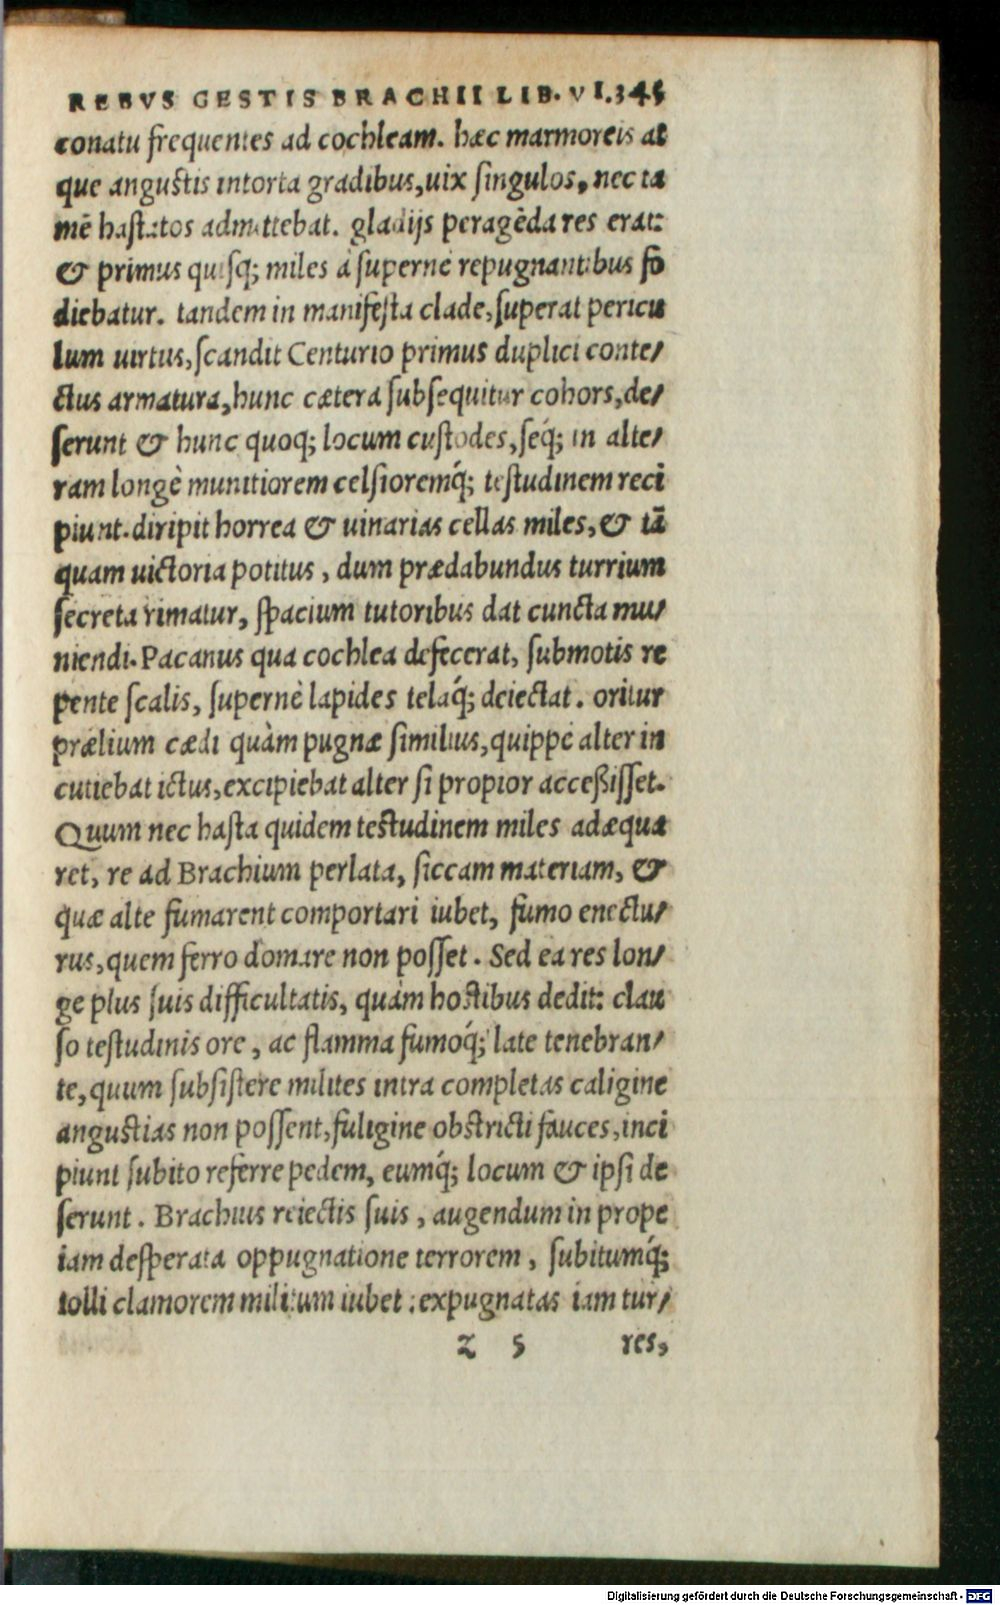 REBVS GESTIS BRACHII LIB. VI. 345
conatu frequentes ad cochleam. hæc marmoreis at
que angustis intorta gradibus, uix singulos, nec ta
mē hastatos admittebat. gladijs peragēda res erat:
& primus quisq; miles à supernè repugnantibus fo
diebatur. tandem in manifesta clade, superat pericu
lum uirtus, scandit Centurio primus duplici conte/
ctus armatura, hunc cætera subsequitur cohors, de/
serunt & hunc quoq; locum custodes, seq́; in alte/
ram longè munitiorem celsioremq́; testudinem reci
piunt. diripit horrea & uinarias cellas miles, & tā
quam uictoria potitus, dum prædabundus turrium
secreta rimatur, spacium tutoribus dat cuncta mu/
niendi. Pacanus qua cochlea defecerat, submotis re
pente scalis, supernè lapides telaq́; deiectat. oritur
prælium cædi quàm pugnæ similius, quippe alter in
cutiebat ictus, excipiebat alter si propior acceßisset.
Quum nec hasta quidem testudinem miles adæqua
ret, re ad Brachium perlata, siccam materiam, &
quæ alte fumarent comportari iubet, fumo enectu/
rus, quem ferro domare non posset. Sed ea res lon/
ge plus suis difficultatis, quàm hostibus dedit: clau
so testudinis ore, ac flamma fumoq́; late tenebran/
te, quum subsistere milites intra completas caligine
angustias non possent, fuligine obstricti fauces, inci
piunt subito referre pedem, eumq́; locum & ipsi de
serunt. Brachius reiectis suis, augendum in prope
iam desperata oppugnatione terrorem, subitumq́;
tolli clamorem militum iubet: expugnatas iam tur/
Z 5 res,
Digitalisierung gefördert durch die Deutsche Forschungsgemeinschaft - DFG